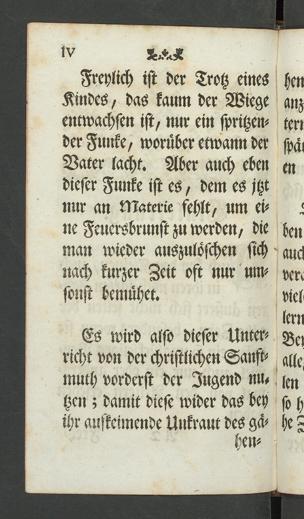 IV
Freylich ist der Trotz eines
Kindes, das kaum der Wiege
entwachsen ist, nur ein spritzen-
der Funke, worüber etwann der
Vater lacht. Aber auch eben
dieser Funke ist es, dem es jtzt
nur an Materie fehlt, um ei-
ne Feuersbrunst zu werden, die
man wieder auszulöschen sich
nach kurzer Zeit oft nur um-
sonst bemühet.
Es wird also dieser Unter-
richt von der christlichen Sanft-
muth vorderst der Jugend nu-
tzen; damit diese wider das bey
ihr aufkeimende Unkraut des gä-
hen-